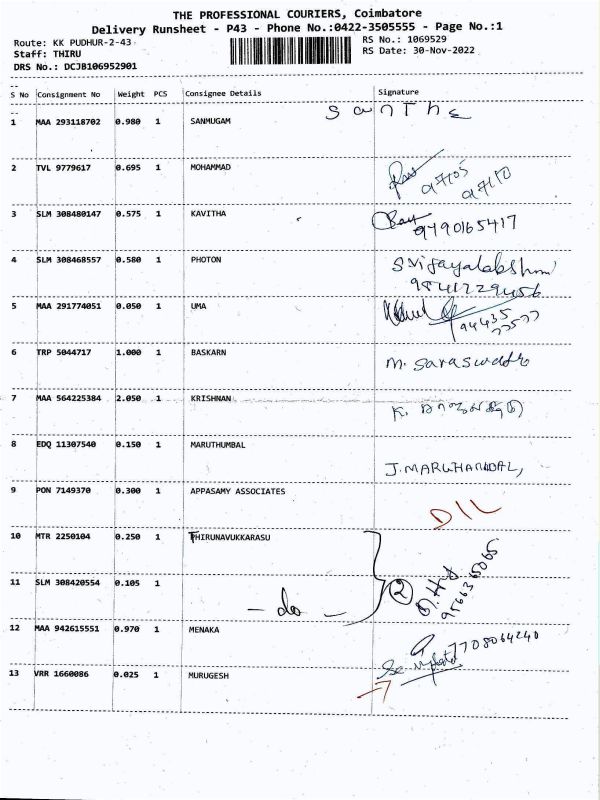 THE PROFESSIONAL COURIERS, Coimbatore
Delivery Runsheet - P43 - Phone No.:0422-3505555 - Page No.:1
Route: KK PUDHUR-2-43
RS No.: 1069529
Staff: THIRU
RS Date: 30-Nov-2022
DRS No.: DCJB106952901
S No Consignment No Weight PCS Consignee Details Signature
1 MAA 293118702 0.980 1 SANMUGAM santhe
2 TVL 9779617 0.695 1 MOHAMMAD
3 SLM 308480147 0.575 1 KAVITHA 9790165417
4 SLM 308468557 0.580 1 PHOTON S Vijayalakshmi
9841729456
5 MAA 291774051 0.050 1 UMA 94435
77577
6 TRP 5044717 1.000 1 BASKARN M. Saraswathi
7 MAA 564225384 2.050 1 KRISHNAN K.
8 EDQ 11307540 0.150 1 MARUTHUMBAL
J. MARUTHAMBAL,
9 PON 7149370 0.300 1 APPASAMY ASSOCIATES D/L
10 MTR 2250104 0.250 1 THIRUNAVUKKARASU
11 SLM 308420554 0.105 1 - do - 2 9566365065
12 MAA 942615551 0.970 1 MENAKA 7708064240
13 VRR 1660086 0.025 1 MURUGESH